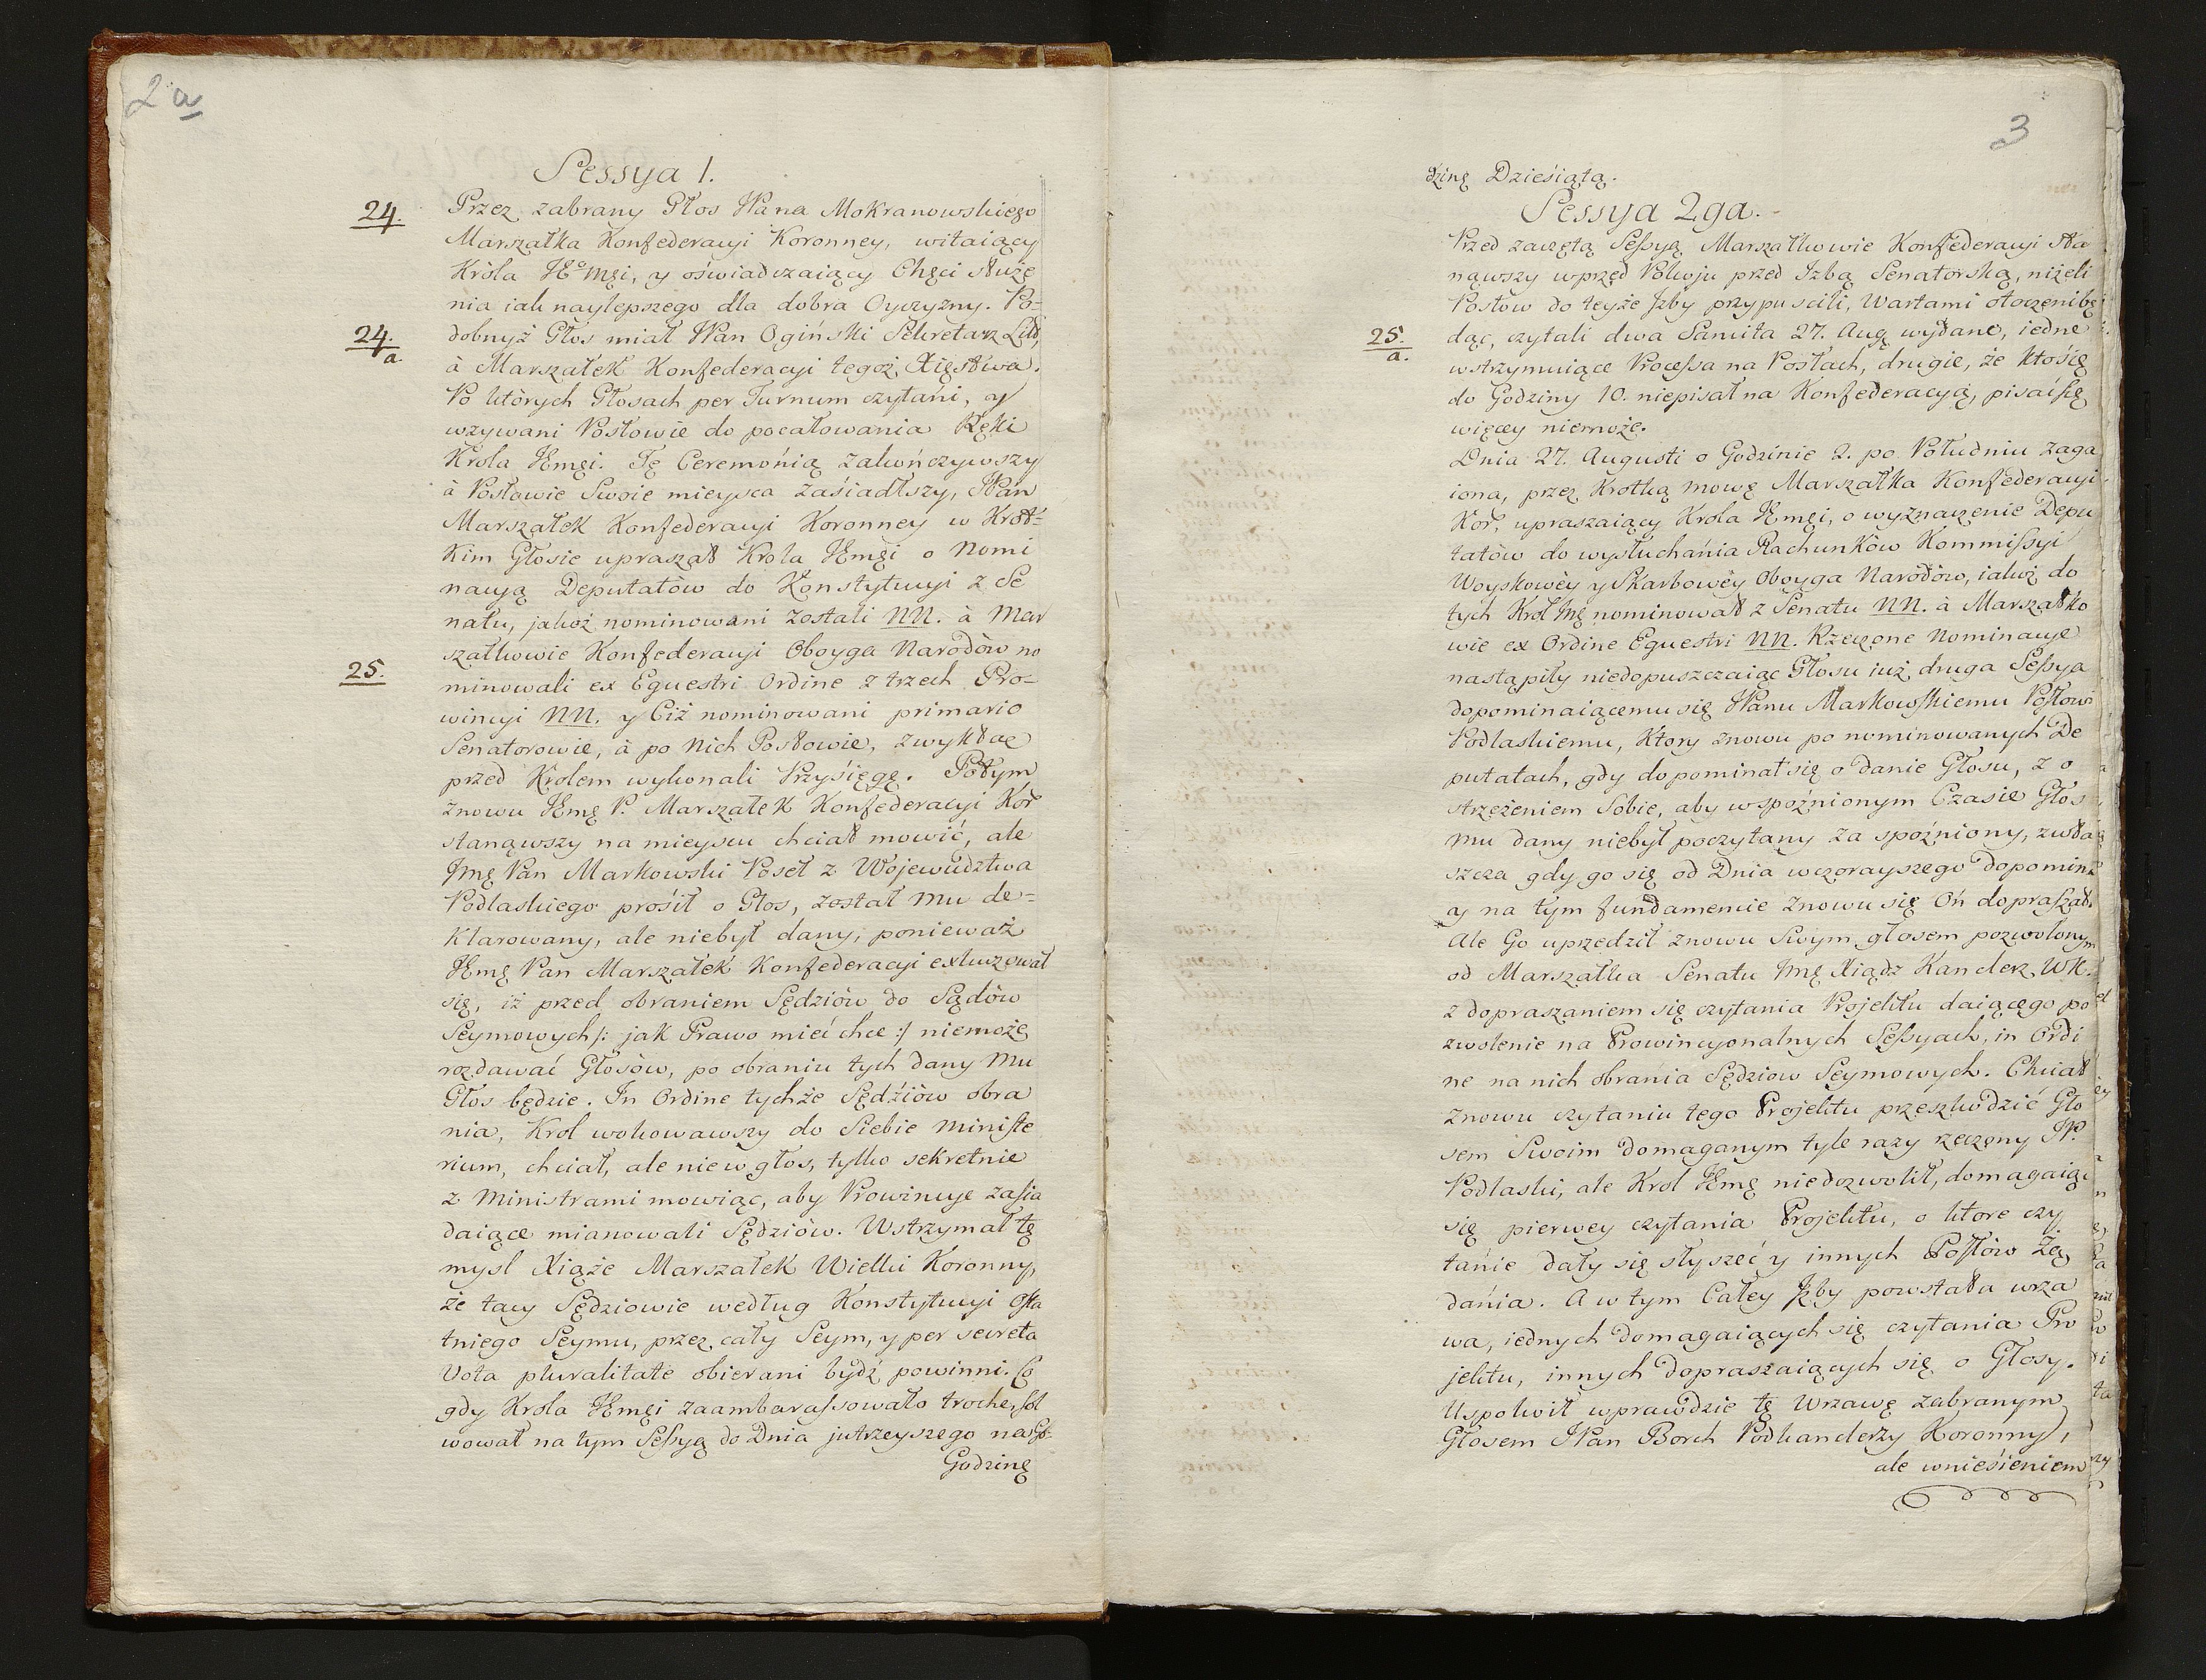 2 a
Sessya 1.
24. Przez zabrany Głos JPana Mokranowskiego
Marszałka Konfederacyi Koronney, witaiący
Króla JEºmci, y oświadczaiący Chęci służe
nia iak naylepszego dla dobra Oyczyzny. Po=
24. a dobnyż Głos miał JPan Ogiński Sekretarz Litt,
à Marszałek Konfederacyi tegoż Xięstwa.
Po których Głosach per Turnum czytani, y
wzywani Posłowie do pocałowania Ręki
Krola JEmci. Tę Ceremonią zakończywszy
à Posłowie Swoie mieysca zaśiadłszy, JPan
Marszałek Konfederacyi Koronney w Krot=
kim Głosie upraszał Krola JEmci o Nomi
nacyą Deputatów do Konstytucyi z Se
natu, jakoż nominowani zostali NN. à Mar
szałkowie Konfederacyi Oboyga Narodòw no
25. minowali ex Equestri Ordine z trzech Pro=
wincyi NN. y Ciż nominowani primario
Senatorowie, à po nich Posłowie, zwykłą
przed Krolem wykonali Przyśięgę. Potym
znowu JEmć P. Marszałek Konfederacyi Kor
stanąwszy na mieyscu chciał mowić, ale
Jmć Pan Markowski Poseł z Wojewudztwa
Podlaskiego prosił o Głos, został mu de=
klarowany, ale niebył dany, ponieważ
JEmć Pan Marszałek Konfederacyi exkuzował
się, iż przed obraniem Sędziòw do Sądòw
Seymowych /: jak Prawo mieć chce :/ niemoże
rozdawać Głosòw, po obraniu tych dany mu
Głos będzie. In Ordine tychże Sędźiòw obra
nia, Krol wokowawszy do Siebie Ministe
rium, chciał, ale nie w głos, tylko sekretnie
z Ministrami mowiąc, aby Prowincye zasia
daiące mianowali Sędziòw. Wstrzymał tę
mysl Xiąże Marszałek Wielki Koronny,
że tacy Sędziowie według Konstytucyi Osta
tniego Seymu, przez cały Seym, y per secreta
Vota pluralitate obierani bydź powinni. Co
gdy Krola JEmci zaambarassowało troche, sol
wował na tym Sessyą do Dnia jutrzeyszego na Go=
Godzinę
3
dzinę Dziesiątą.
Sessya 2ga.
Przed zaczętą Sessyą Marszałkowie Konfederacyi sta
nąwszy wprzęd Pokoju przed Izbą Senatorską, niżeli
Posłow do teyże Jzby przypuscili, Wartami otoczeni bę
25. a. dąc, czytali dwa Sancita 27. Aug wydane, iedne
wstrzymuiące Processa na Posłach, drugie, że ktośię
do Godziny 10. niepisał na Konfederacyą, pisać się
więcey niemoże.
Dnia 27. Augusti o Godzinie 2. po Południu zaga
iona, przez krotką mowę Marszałka Konfederacyi
Kor, upraszaiący Krola JEmci, o wyznaczenie Depu
tatòw do wysłuchania Rachunkòw Kommissyi
Woyskowèy y Skarbowèy Oboyga Narodòw, iakoż do
tych Krol Jmć nominował z Senatu NN. à Marszałko
wie ex Ordine Equestri NN. Rzeczone Nominacye
nastąpiły niedopuszczaiąc Głosu iuż druga Sessya
dopominaiącemu się JPanu Markowskiemu Posłowi
Podlaskiemu, Który znowu po nominowanych De
putatach, gdy dopominał się o danie Głosu, z o
strzeżeniem Sobie, aby wspoźnionym Czasie Głos
mu dany niebył poczytany za spoźniony, zwła
szcza gdy go się od Dnia wczorayszego dopomina
y na tym fundamencie znowu się Oń dopraszał.
Ale Go uprzedził znowu Swym głosem pozwolonym
od Marszałka Senatu Jmć Xiądz Kanclerz WK.
z dopraszaniem się czytania Projektu daiącego po
zwolenie na Prowincyonalnych Sessyach, in Ordi
ne na nich obrania Sędziow Seymowych. Chciał
znowu czytaniu tego Projektu przeszkodzić Gło
sem Swoim domaganym tyle razy rzeczony JP.
Podlaski, ale Krol JEmć niedozwolił, domagaiąc
się pierwey czytania Projektu, o ktore czy
tanie dały się słyszeć y innych Posłòw Żą
dania. A w tym Całey Jzby powstała wrza
wa, iednych domagaiących się czytania Pro
jektu, innych dopraszaiących się o Głosy.
Uspokoił wprawdzie tę Wrzawę zabranym
Głosem JPan Borch Podkanclerzy Koronny,
ale wnieśieniem